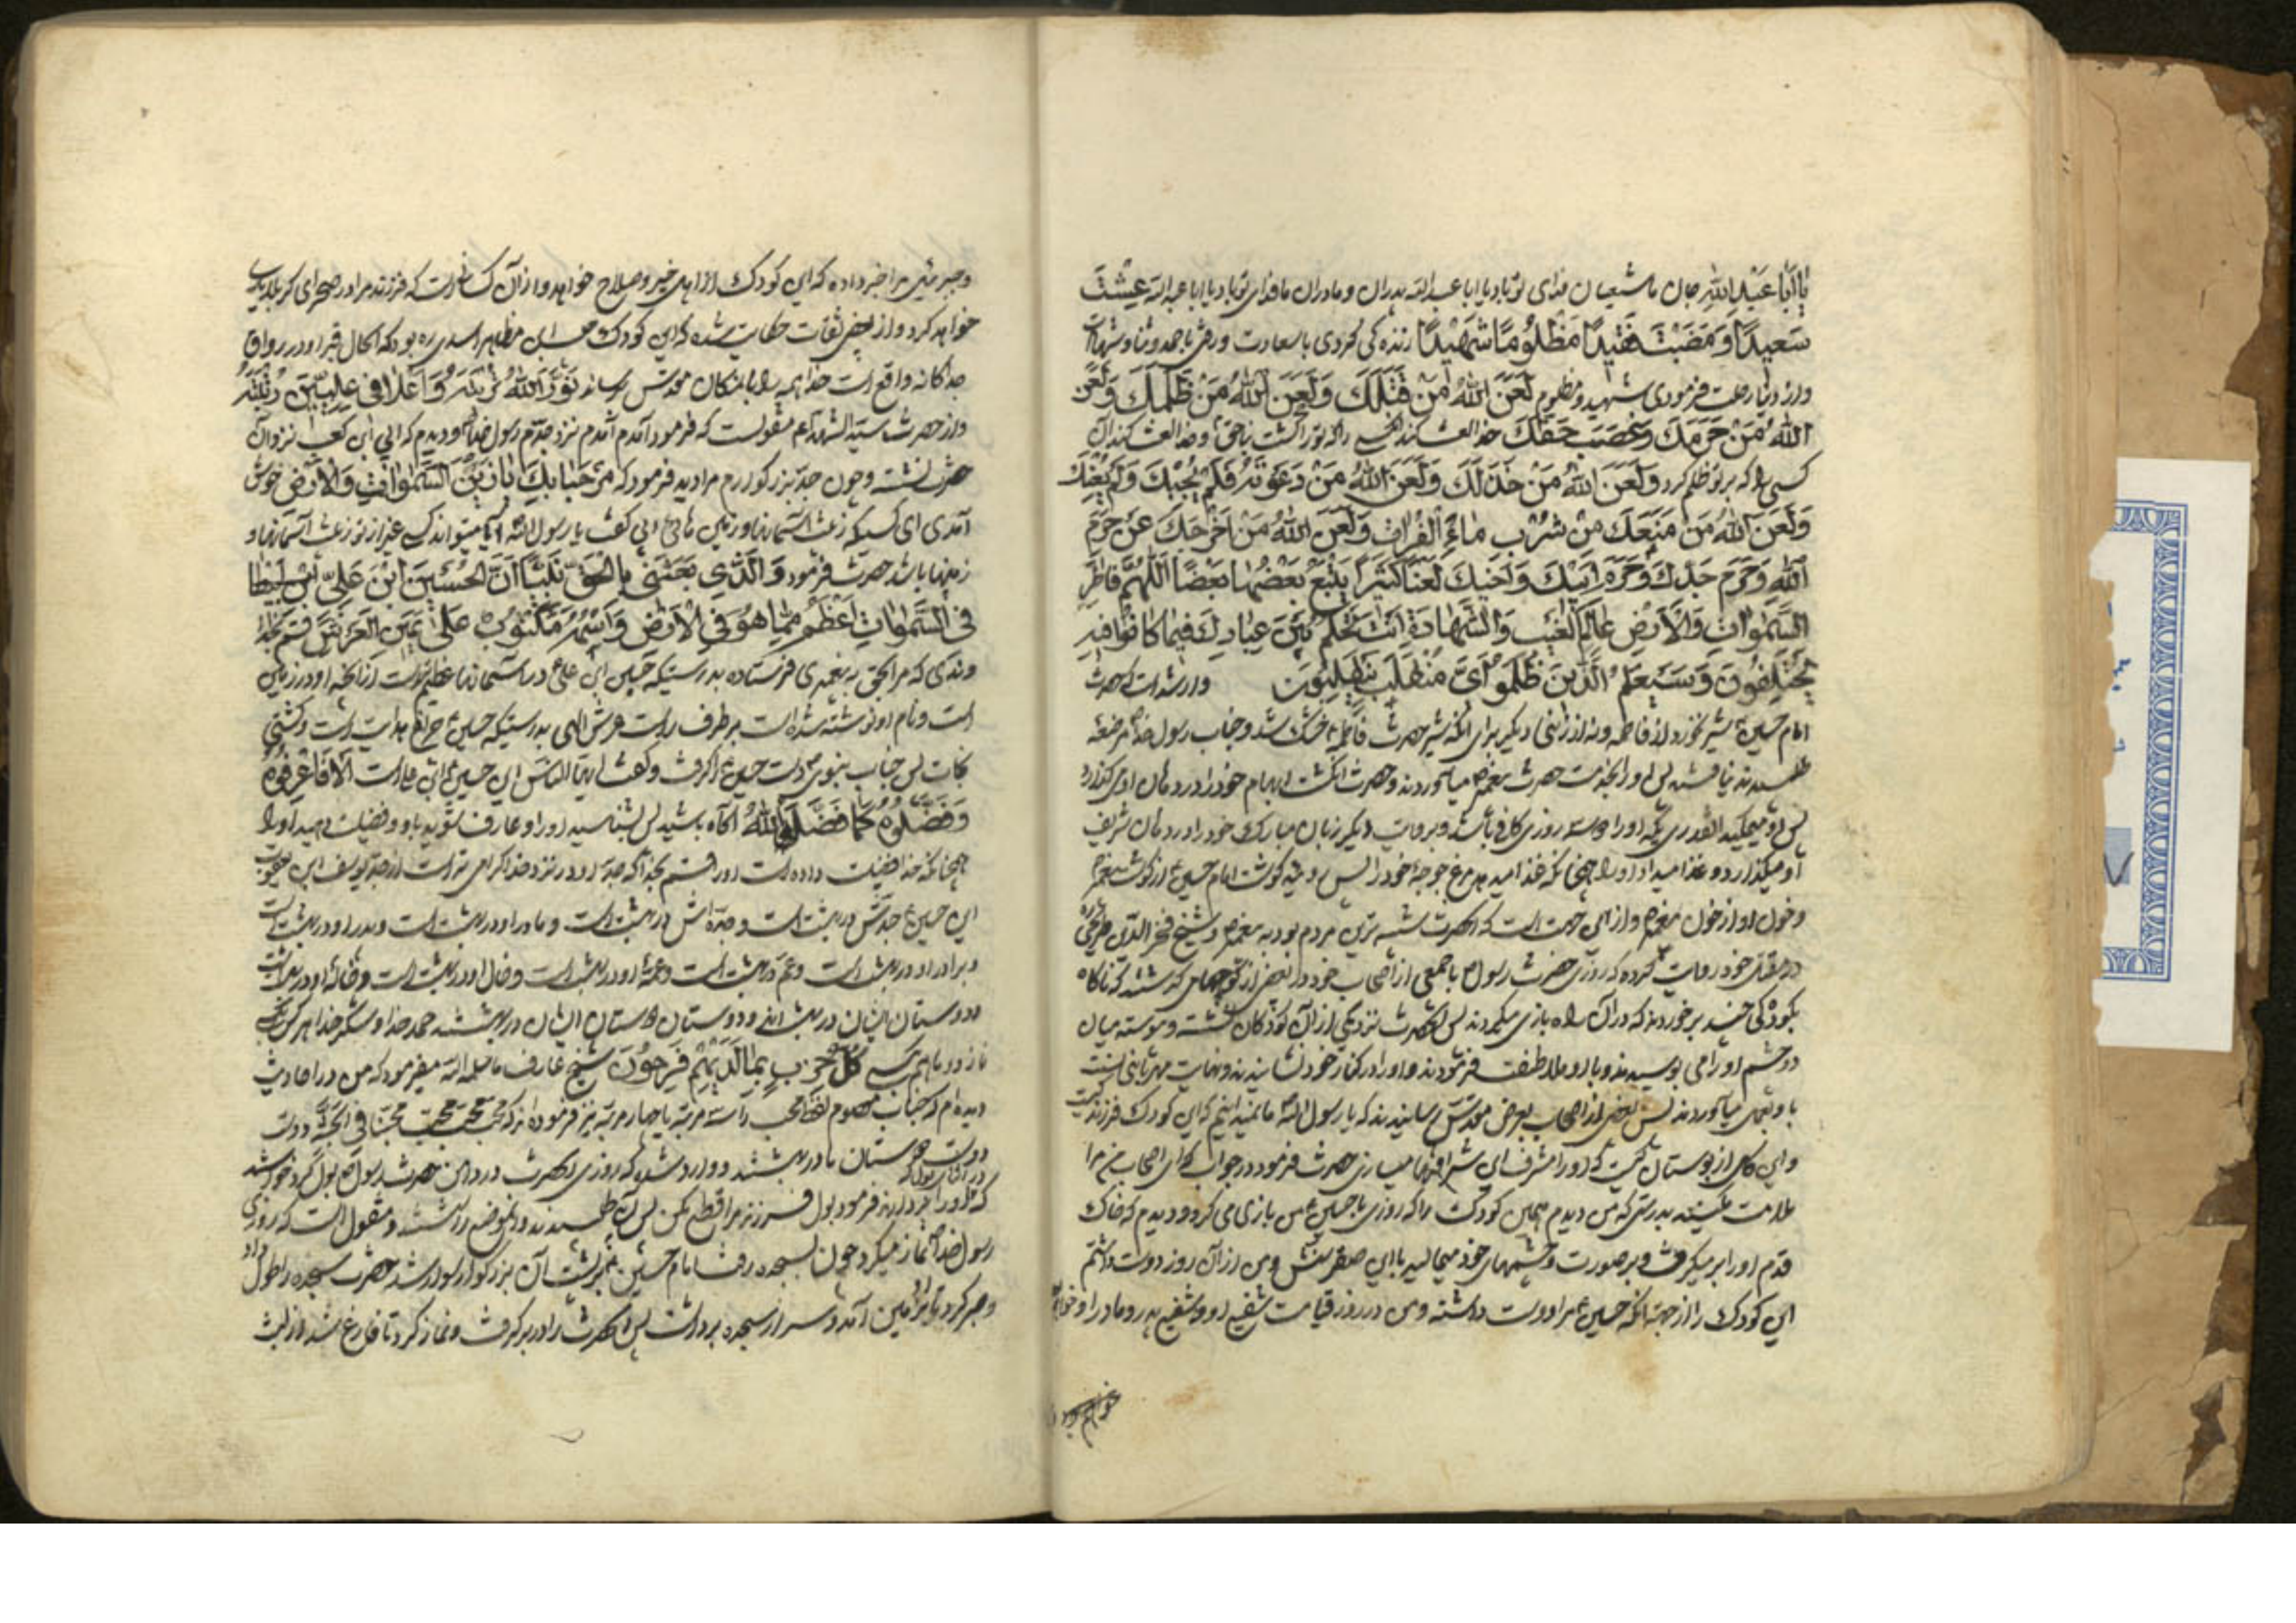 یا اَبا عَبْدِ اللهِ جان ما شیعیان فدای تو باد یا ابا عبد الله پدران و مادران ما فدای تو باد یا ابا عبد الله عِشْتَ
سَعیدًا وَ مَضَیْتَ فَقیدًا مَظْلُومًا شَهیدًا زنده گی کردی با سعادت و رفتی با حمد و ثنا و شهادت
و از دنیا رحلت فرمودی شهید و مظلوم لَعَنَ اللهُ مَنْ قَتَلَكَ وَ لَعَنَ اللهُ مَنْ ظَلَمَكَ وَ لَعَنَ
اللهُ مَنْ حَرَمَكَ وَ غَصَبَ حَقَّكَ خدا لعنت کند کسی را که تو را کشت بناحق و خدا لعنت کند آن
کسی را که بر تو ظلم کرد وَ لَعَنَ اللهُ مَنْ خَذَلَكَ وَ لَعَنَ اللهُ مَنْ دَعَوْتَهُ فَلَمْ یُجِبْكَ وَ لَمْ یُعِنْكَ
وَ لَعَنَ اللهُ مَنْ مَنَعَكَ مِنْ شُرْبِ ماءِ الْفُراتِ وَ لَعَنَ اللهُ مَنْ اَخْرَجَكَ عَنْ حَرَمِ
اللهِ وَ حَرَمِ جَدِّكَ وَ حَرَمِ اَبیكَ وَ اَخیكَ لَعْنًا کَثیرًا یَتْبَعُ بَعْضُها بَعْضًا اَللّهُمَّ فاطِرَ
السَّمواتِ وَ الْاَرْضِ عالِمَ الْغَیْبِ وَ الشَّهادَةِ اَنْتَ تَحْکُمُ بَیْنَ عِبادِكَ فیما کانُوا فیهِ
یَخْتَلِفُونَ وَ سَیَعْلَمُ الَّذینَ ظَلَمُوا اَیَّ مُنْقَلَبٍ یَنْقَلِبُونَ وارد شده است که حضرت
امام حسین ع شیر نخورد از فاطمه و نه از زنی دیگر برای آنکه شیر حضرت فاطمه خشک شد و جناب رسول خدا ص مرضعه
طلبیدند نیافتند پس او را بخدمت حضرت پیغمبر ص میآوردند و حضرت انگشت ابهام خود را در دهان او میگذارد
پس او میمکید آنقدری که او را دو سه روزی کافی باشد و بروایت دیگر زبان مبارک خود را در دهان شریف
او میگذارد و غذا میداد او را چنانکه غذا میدهد مرغ جوجهٔ خود را پس روئید گوشت امام حسین ع از گوشت پیغمبر
و خون او از خون پیغمبر ص و از این جهت است که آنحضرت شبیه ترین مردم بود به پیغمبر ص و شیخ فخر الدین طریحی
در مقتل خود روایت کرده که روزی حضرت رسول ص با جمعی از اصحاب خود در بعضی از کوچهای گذشتند که ناگاه
بکودکی چند برخوردند که در آن راه بازی میکردند پس آنحضرت نزد یکی از آن کودکان نشسته و پیوسته میان
دو چشم او را می بوسیدند و با او ملاطفت فرمودند و او را در کنار خود نشانیدند و نهایت مهربانی نسبت
باو بجای میآوردند پس بعضی از اصحاب بعرض مقدس رسانیدند که یا رسول الله ما نمیدانیم که این کودک فرزند کیست
و این گل از بوستان کیست که او را مشرف باین شرافتها میسازی حضرت فرمود در جواب که ای اصحاب من مرا
ملامت مکنید بدرستیکه من دیدم همین کودک را که روزی با حسین ع من بازی می کرد و دیدم که خاک
قدم او را بر میگرفت و بر صورت و چشمهای خود میمالید با این صغر سنش و من از آن روز دوست داشتم
این کودک را از جهة آنکه حسین مرا دوست داشته و من در روز قیامت شفیع او و شفیع پدر و مادر او خواهم
خواهم بود
و جبرئیل مرا خبر داده که این کودک از اهل خیر و صلاح خواهد و از آن کسان است که فرزند مرا در صحرای کربلا یاری
خواهد کرد و از بعضی ثقات حکایت شده که این کودک حبیب ابن مظاهر اسدی ره بود که الحال قبر او در رواق
جداگانه واقع است خدا همه را بآنمکان مقدس رساند نَوَّرَ اللهُ تُرْبَتَهُ وَ اَعْلا فی عِلِّیّینَ رُتْبَتَهُ
و از حضرت سید الشهدا ع منقولست که فرمود آمدم نزد جدم رسول خدا و دیدم که ابی ابن کعب نزد آن
حضرت نشسته و چون جد بزرگوارم مرا دید فرمود که مَرْحَبا بِكَ یا زَیْنَ السَّمواتِ وَ الْاَرْضِ خوش
آمدی ای کسیکه زینت آسمانها و زمین هائی ابی گفت یا رسول الله آیا میتواند کسی غیر از تو زینت آسمانها و
زمینها باشد حضرت فرمود وَ الَّذی بَعَثَنی بِالْحَقِّ نَبِیًّا اَنَّ الْحُسَیْنَ ابْنَ عَلِیّ
فِی السَّمواتِ اَعْظَمُ مِمّا هُوَ فِی الْاَرْضِ وَ اسْمُهُ مَکْتُوبٌ عَلی یَمینِ الْعَرْشِ قسم بخدا
وندی که مرا بحق به پیغمبری فرستاده بدرستیکه حسین ابن علی ع در آسمانها عظیم تر است از آنچه او در زمین
است و نام او نوشته شده است بر طرف راست عرش الهی بدرستیکه حسین ع چراغ هدایت است و کشتی
نجات پس جناب نبوی ص دست حسین ع را گرفت و گفت ایها الناس این حسین ع ابن علی است اَلا فَاعْرِفُوهُ
وَ فَضِّلُوهُ کَما فَضَّلَهُ اللهُ آگاه باشید پس بشناسید او را و عارف شوید باو و فضیلت دهید او را
همچنانکه خدا فضیلت داده است او را قسم بخدا که جد او در نزد خدا گرامی تر است از جد یوسف ابن یعقوب
این حسین ع جدش در بهشت است و جده اش در بهشت است و مادر او در بهشت است و پدر او در بهشت است
و برادر او در بهشت است و عم در بهشت است و عمهٔ او در بهشت است و خال او در بهشت است و خالهٔ او در بهشت است
و دوستان ایشان در بهشت اند و دوستان دوستان ایشان در بهشتند حمد خدا و شکر خدا هر کس
کُلُّ حِزْبٍ بِما لَدَیْهِمْ فَرِحُونَ شیخ عارف میفرمود که من در احادیث
دیده ام که جناب معصوم لفظ محب را سه مرتبه یا چهار مرتبه نیز فرموده اند که محب محب محب محبنا فی الجنة دوست
دوست دوستان ما در بهشتند و وارد شده که روزی آنحضرت در دامن حضرت رسول ص بول کرد خواستند
در اثنای بول
که او را بردارند فرمود بول فرزند مرا قطع مکن پس آب طلبیدند و آنموضع را شستند و منقول است که روزی
رسول خدا ص نماز میکرد چون بسجده رفت امام حسین ع بر پشت آن بزرگوار سوار شد حضرت سجده را طول داد
و صبر کرد تا پائین آمد و سر از سجده برداشت پس آنحضرت را در بر گرفت و نماز کرد تا فارغ شد